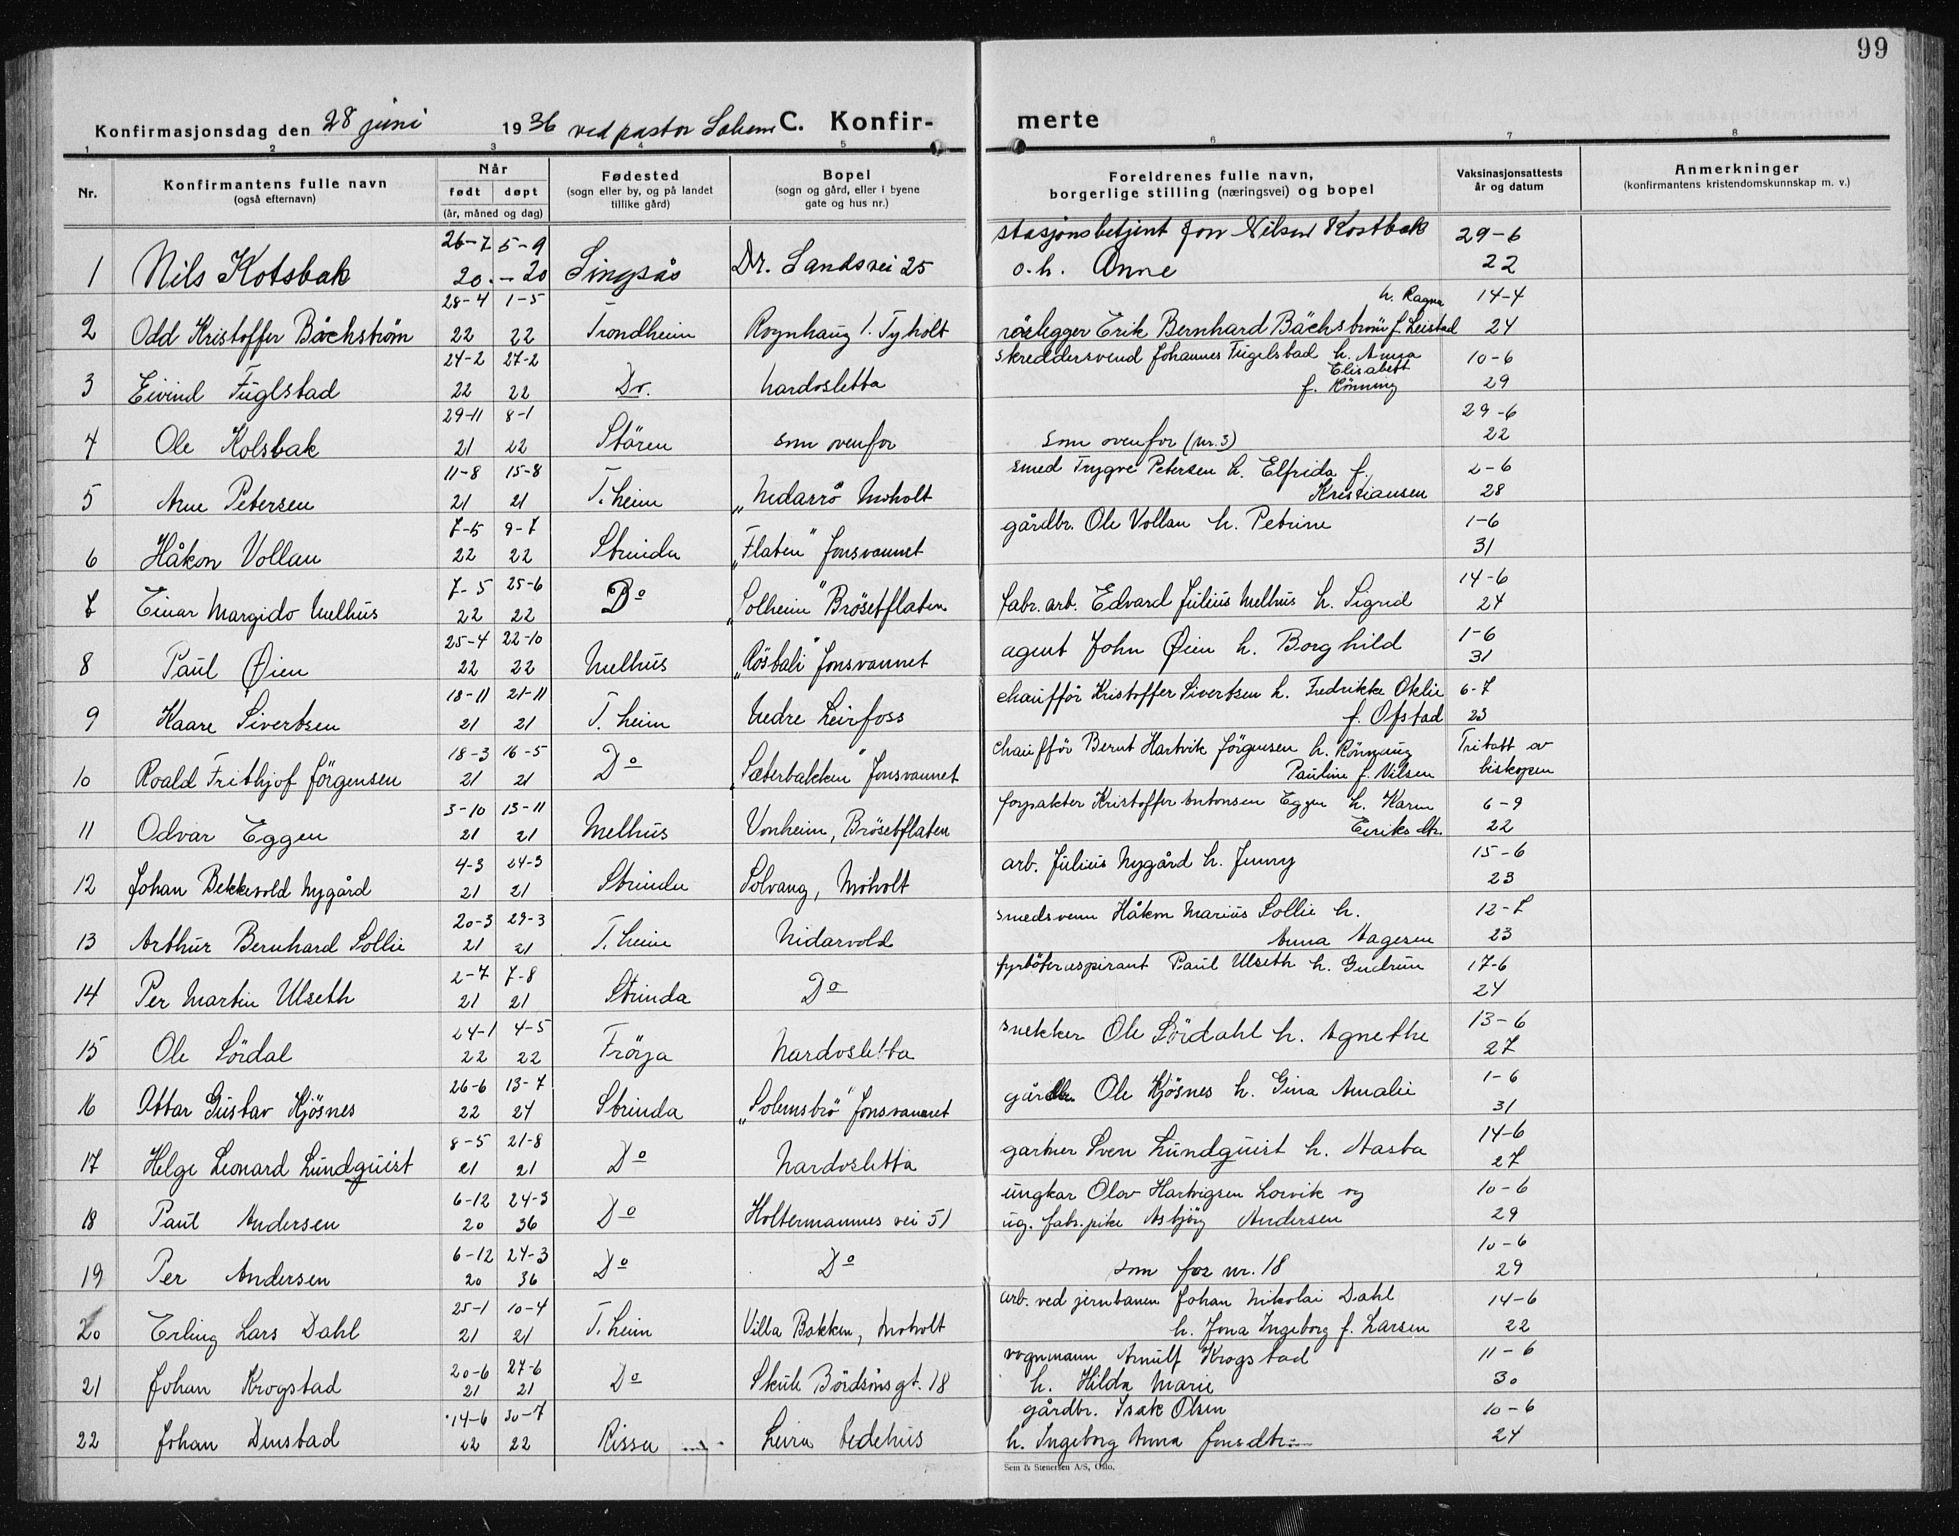 99
Konfirmasjonsdag den 28 juni 1936 ved pastor C. Konfirmerte
1 2 3 4 5 6 7 8
Nr. Konfirmantens fulle navn (også efternavn) Når født døpt (år, måned og dag) Fødested (sogn eller by, og på landet tillike gård) Bopel (sogn og gård, eller i byene gate og hus nr.) Foreldrenes fulle navn, borgerlige stilling (næringsvei) og bopel Vaksinasjonsattests år og datum Anmerkninger (konfirmantens kristendomskunnskap m. v.)
1 Nils Kotsbak 26-7 20. 5-9 -20 Singsås Dr. Sandsvei 25 stasjonsbetjent Jon Nilsen Kostbak o.h. Anne 29-6 22
2 Odd Kristoffer Bächstrøm 28-4 22 1-5 22 Trondheim Rognhaug 1. Tyholt rørlegger Erik Bernhard Bächstrøm h. Ragna f. Leistad 14-4 24
3 Eivind Fuglstad 24-2 22 27-2 22 Do. Nardosletta skreddersvend Johannes Fugelstad h. Anna Elisabett f. Rønning 10-6 29
4 Ole Kolsbak 29-11 21 8-1 22 Støren som ovenfor som ovenfor (nr. 3) 29-6 22
5 Arne Petersen 11-8 21 15-8 21 T.heim „Nidarrå Moholt smed Trygve Petersen h. Elfrida f. Kristiansen 2-6 28
6 Håkon Vollan 7-5 22 9-7 22 Strinda „Flaten" Jonsvannet gårdbr. Ole Vollan h. Petrine 1-6 31
7 Einar Margido Melhus 7-5 22 25-6 22 Do „Solheim" Brøsetflaten fabr. arb. Edvard Julius Melhus h. Sigrid 14-6 24
8 Paul Øien 25-4 22 22-10 22 Melhus „Røsbali" Jonsvannet agent John Øien h. Borghild 1-6 31
9 Kaare Sivertsen 18-11 21 21-11 21 T.heim Nedre Leirfoss chauffør Kristoffer Sivertsen h. Fredrikke Otelie f. Ofstad 6-7 23
10 Roald Frithjof Jørgensen 18-3 21 16-5 21 Do „Sæterbakken" Jonsvannet chauffør Bernt Hartvik Jørgensen h. Rønnaug Pauline f. Nilsen Fritatt av biskopen
11 Odvar Eggen 3-10 21 13-11 21 Melhus Vonheim, Brøsetflaten forpakter Kristoffer Antonsen Eggen h. Karen Eeriksdtr. 6-9 22
12 Johan Bekkevold Nygård 4-3 21 24-3 21 Strinda Solvang, Moholt arb. Julius Nygård h. Jenny 15-6 23
13 Arthur Bernhard Sollie 20-3 21 29-3 21 T.heim Nidarvold smedsvenn Håkon Marius Sollie h. Anna Aagesen 12-7 23
14 Per Martin Ulseth 2-7 21 7-8 21 Strinda Do fyrbøteraspirant Paul Ulseth h. Gudrun 17-6 24
15 Ole Sørdal 24-1 22 4-5 22 Frøya Nardosletta snekker Ole Sørdahl h. Agnethe 13-6 27
16 Ottar Gustav Kjøsnes 26-6 22 13-7 24 Strinda „Solemsbrå" Jonsvannet gårdbr. Ole Kjøsnes h. Gina Amalie 1-6 31
17 Helge Leonard Lundquist 8-5 21 21-8 21 Do Nardosletta gartner Sven Lundquist h. Aasta 14-6 27
18 Paul Andersen 6-12 20 24-3 36 Do Holtermannes vei 51 ungkar Olav Hartvigsen Lorvik og ug. fabr.pike Asbjørg Andersen 10-6 29
19 Per Andersen 6-12 20 24-3 36 Do Do som for nr. 18 10-6 29
20 Erling Lars Dahl 25-1 21 10-4 21 T.heim Villa Bakken, Moholt arb. ved jernbanen Johan Nikolai Dahl h. Jona Ingeborg f. Larsen 14-6 22
21 Johan Krogstad 20-6 21 27-6 21 Do Skule Bårdsøns gt. 18 vognmann Arnulf Krogstad h. Hilda Marie 11-6 30
22 Johan Denstad 14-6 22 30-7 22 Rissa Leira bedehus gårdbr. Isak Olsen h. Ingeborg Anna Jonsdtr. 10-6 24
Sem & Stenersen A/S, Oslo.